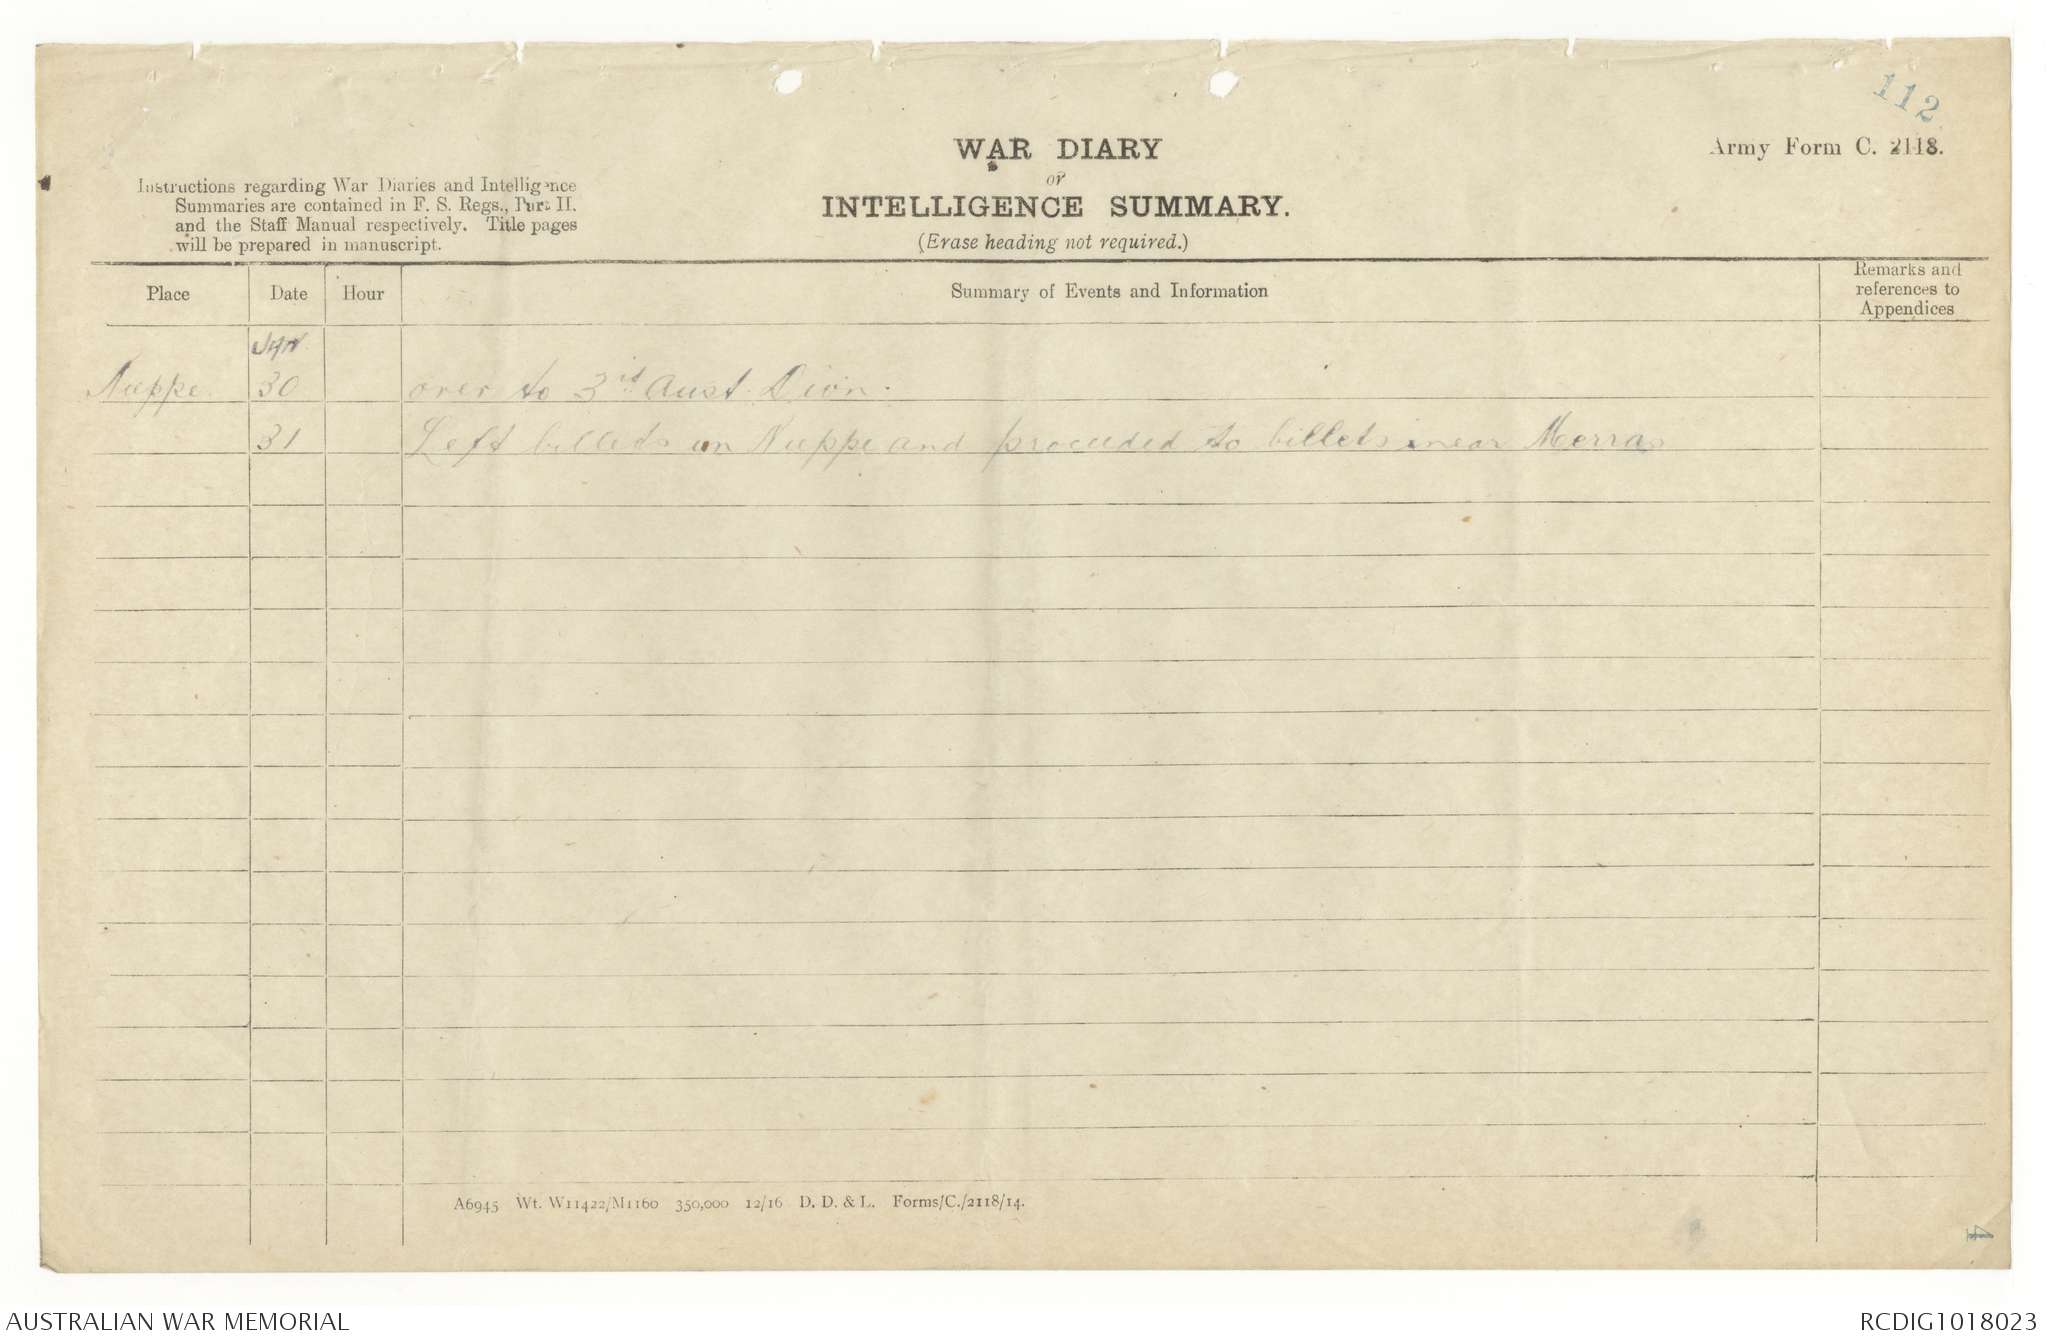 112
WAR DIARY
or
INTELLIGENCE SUMMARY.
(Erase heading not required.)
Army Form C. 2118.
Instructions regarding War Diaries and Intelligence
Summaries are contained in F. S. Regs., Part II.
and the Staff Manual respectively. Title pages
will be prepared in manuscript.
Place Date Hour Summary of Events and Information Remarks and
references to
Appendices
Jan
Nieppe. 30 over to 3rd Aust. Divn.
31 Left billets in Nieppe and proceeded to billets near Merris
A6945 Wt. W11422/M1160 350,000 12/16 D. D. & L. Forms/C./2118/14.
4
AUSTRALIAN WAR MEMORIAL RCDIG1018023